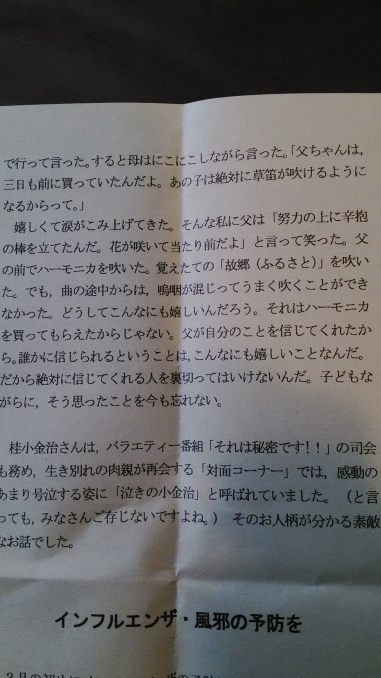 で行って言った。すると母はにこにこしながら言った。「父ちゃんは，
三日も前に買っていたんだよ。あの子は絶対に草笛が吹けるように
なるからって。」
嬉しくて涙がこみ上げてきた。そんな私に父は「努力の上に辛抱
の棒を立てたんだ。花が咲いて当たり前だよ」と言って笑った。父
の前でハーモニカを吹いた。覚えたての「故郷（ふるさと）」を吹い
た。でも，曲の途中からは，嗚咽が混じってうまく吹くことができ
なかった。どうしてこんなにも嬉しいんだろう。それはハーモニカ
を買ってもらえたからじゃない。父が自分のことを信じてくれたか
ら。誰かに信じられるということは，こんなにも嬉しいことなんだ。
だから絶対に信じてくれる人を裏切ってはいけないんだ。子どもな
がらに，そう思ったことを今も忘れない。
桂小金治さんは，バラエティー番組「それは秘密です！！」の司会
も務め，生き別れの肉親が再会する「対面コーナー」では，感動の
あまり号泣する姿に「泣きの小金治」と呼ばれていました。（と言
っても，みなさんご存じないですよね。）　そのお人柄が分かる素敵
なお話でした。
インフルエンザ・風邪の予防を